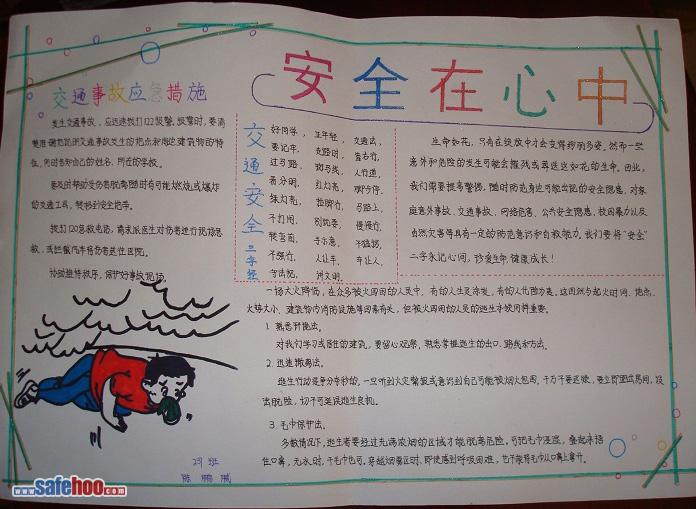 安全在心中
交通事故应急措施
发生交通事故，应迅速拨打122报警。报警时，要清
楚准确地说出交通事故发生的地点和附近建筑物的特
征，同时告知自己的姓名、所在的学校。
要及时帮助受伤者脱离随时有可能燃烧或爆炸
的交通工具，转移到安全地带。
拨打120急救电话，请求派医生对伤者进行现场急
救，或拦截汽车将伤者送往医院。
协助维持秩序，保护好事故现场。
交通安全三字经
好同学，
要记牢，
过马路，
看分明，
绿灯亮，
正年轻，
走路时，
斑马线，
红灯亮，
交通法，
靠右行，
人行道，
脚步停，
马路上，
慢慢行，
不猛跑，
让人让，
人让车，
讲文明。
生命如花，只有在绽放中才会变得绚丽多姿。然而一些
意外和危险的发生可能会摧残或葬送这如花的生命。因此，
我们需要提高警惕，随时防范身边可能出现的安全隐患，对家
庭意外事故、交通事故、网络危害、公共安全隐患、校园暴力以及
自然灾害等具有一定的防范意识和自救能力。我们要将“安全”
二字永记心间，珍爱生命 健康成长！
一场大火降临，在众多被火围困的人员中，有的人生还，有的人
火势大小、建筑物内消防设施等因素有关，但被火围困的人员的逃生
1. 熟悉环境法。
对我们学习或居住的建筑，要留心观察，熟悉掌握逃生的出口、路线和方法。
2. 迅速撤离法。
逃生行动是争分夺秒的，一旦听到火灾警报或意识到自己可能被烟火包围，千万不要迟疑，要立即跑出房间，设
法脱险，切不可延误逃生良机。
3. 毛巾保护法。
多数情况下，逃生者要经过充满浓烟的区域才能脱离危险。可把毛巾浸湿，叠起来捂
住口鼻，无水时，干毛巾也可。穿越烟雾区时，即使感到呼吸困难，也不能将毛巾从口鼻上拿开。
23班
陈
www.safehoo.com